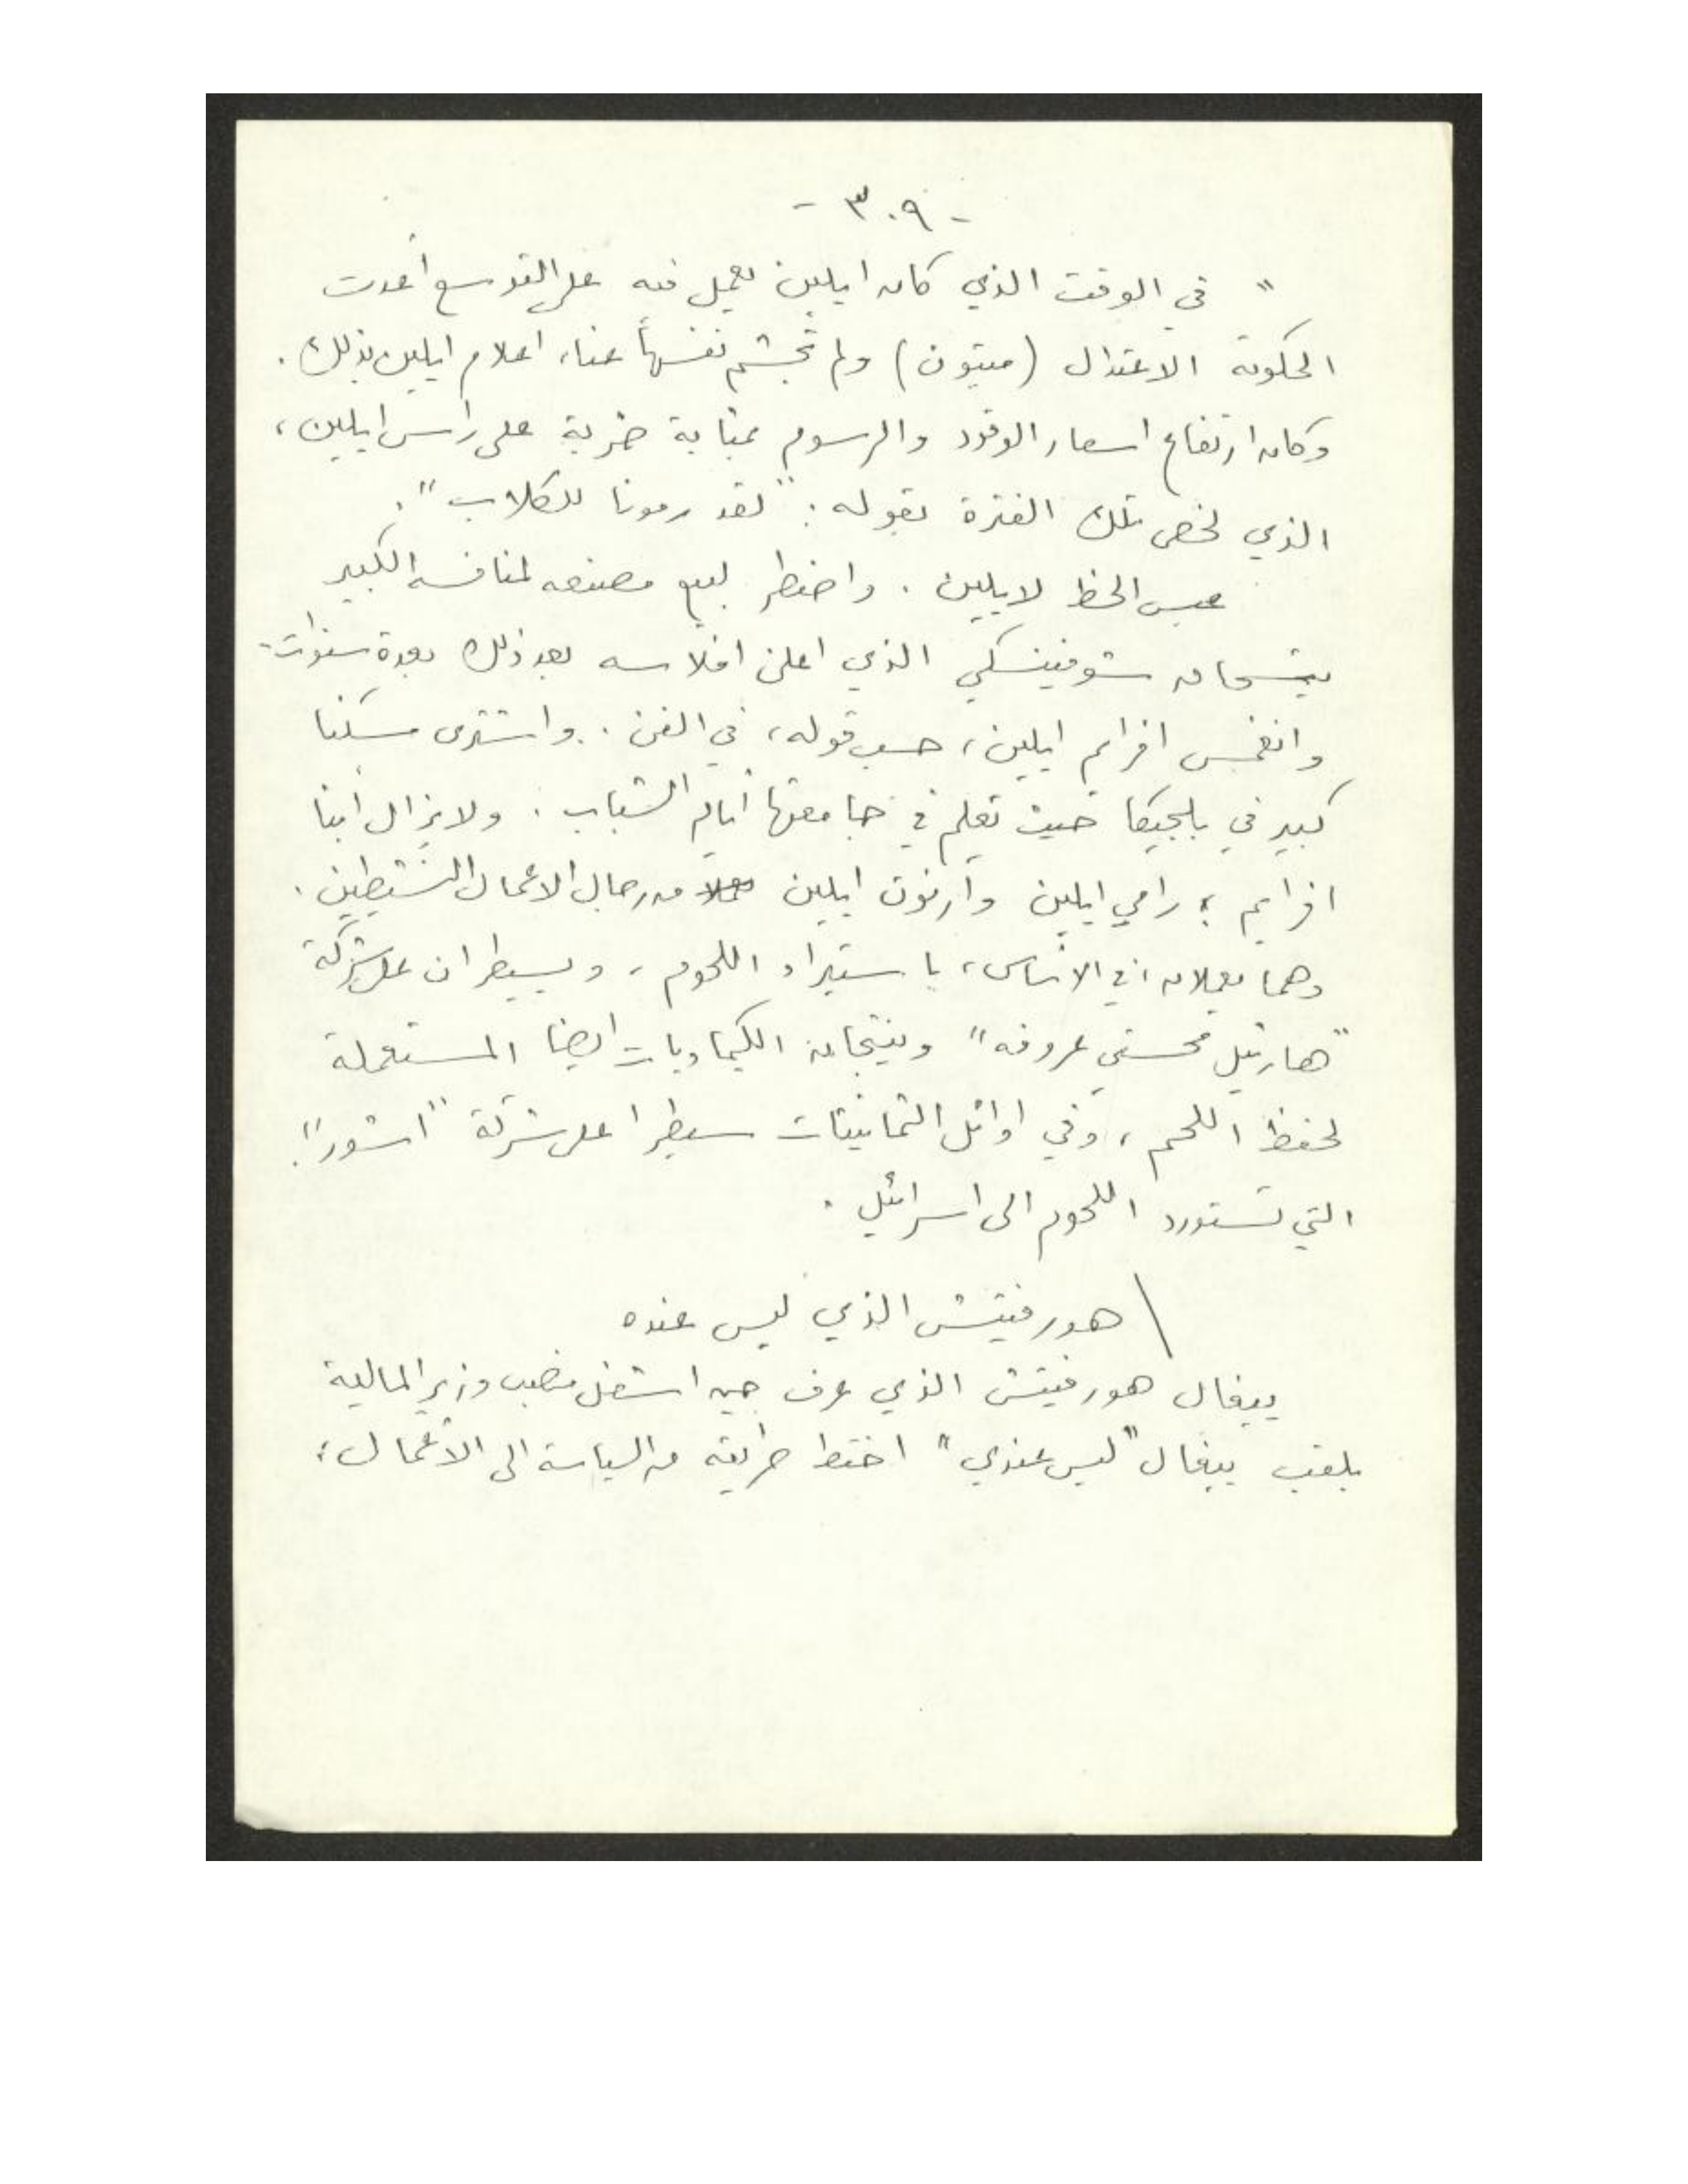 - ٣٠٩ -
" في الوقت الذي كان ايلين يعمل فيه على التوسع أعدت
الحكومة الاعتدال (ميتون) ولم تجشم نفسها عناء اعلام ايلين بذلك .
وكان ارتفاع اسعار الوقود والرسوم بمثابة ضربة على رأس ايلين ،
الذي لخص تلك الفترة بقوله : "لقد رمونا للكلاب" .
عبس الحظ لايلين . واضطر لبيع مصنعه لمنافسه الكبير
شوفينسكي الذي اعلن افلاسه بعد ذلك بعدة سنوات .
وانغمس افرايم ايلين ، حسب قوله ، في الفن . واشترى مسكنا
كبير في بلجيكا حيث تعلم في جامعتها أيام الشباب . ولا يزال أبنا
افرايم ؛ رامي ايلين وارنون ايلين من رجال الاعمال النشيطين .
وهما يعملان ، في الأساس ، باستيراد اللحوم ، ويسيطران على شركة
"هارتيل محستي عروفه" وينتجان الكيماويات ايضا المستعملة
لحفظ اللحم ، وفي اوائل الثمانينات سيطرا على شركة "اشور" .
التي تستورد اللحوم الى اسرائيل .
\ هورفيتش الذي ليس عنده
ييغال هورفيتش الذي عرف حين اشغل منصب وزير المالية
بلقب ييغال "ليس عندي" اختط طريقه من السياسة الى الأعمال ؛